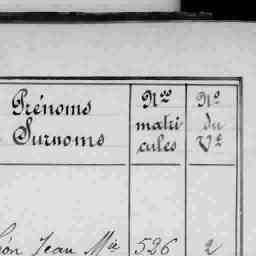 Prénoms
Surnoms
Nos
matri
cules
No
du
Vt
Jean Mie 526 2